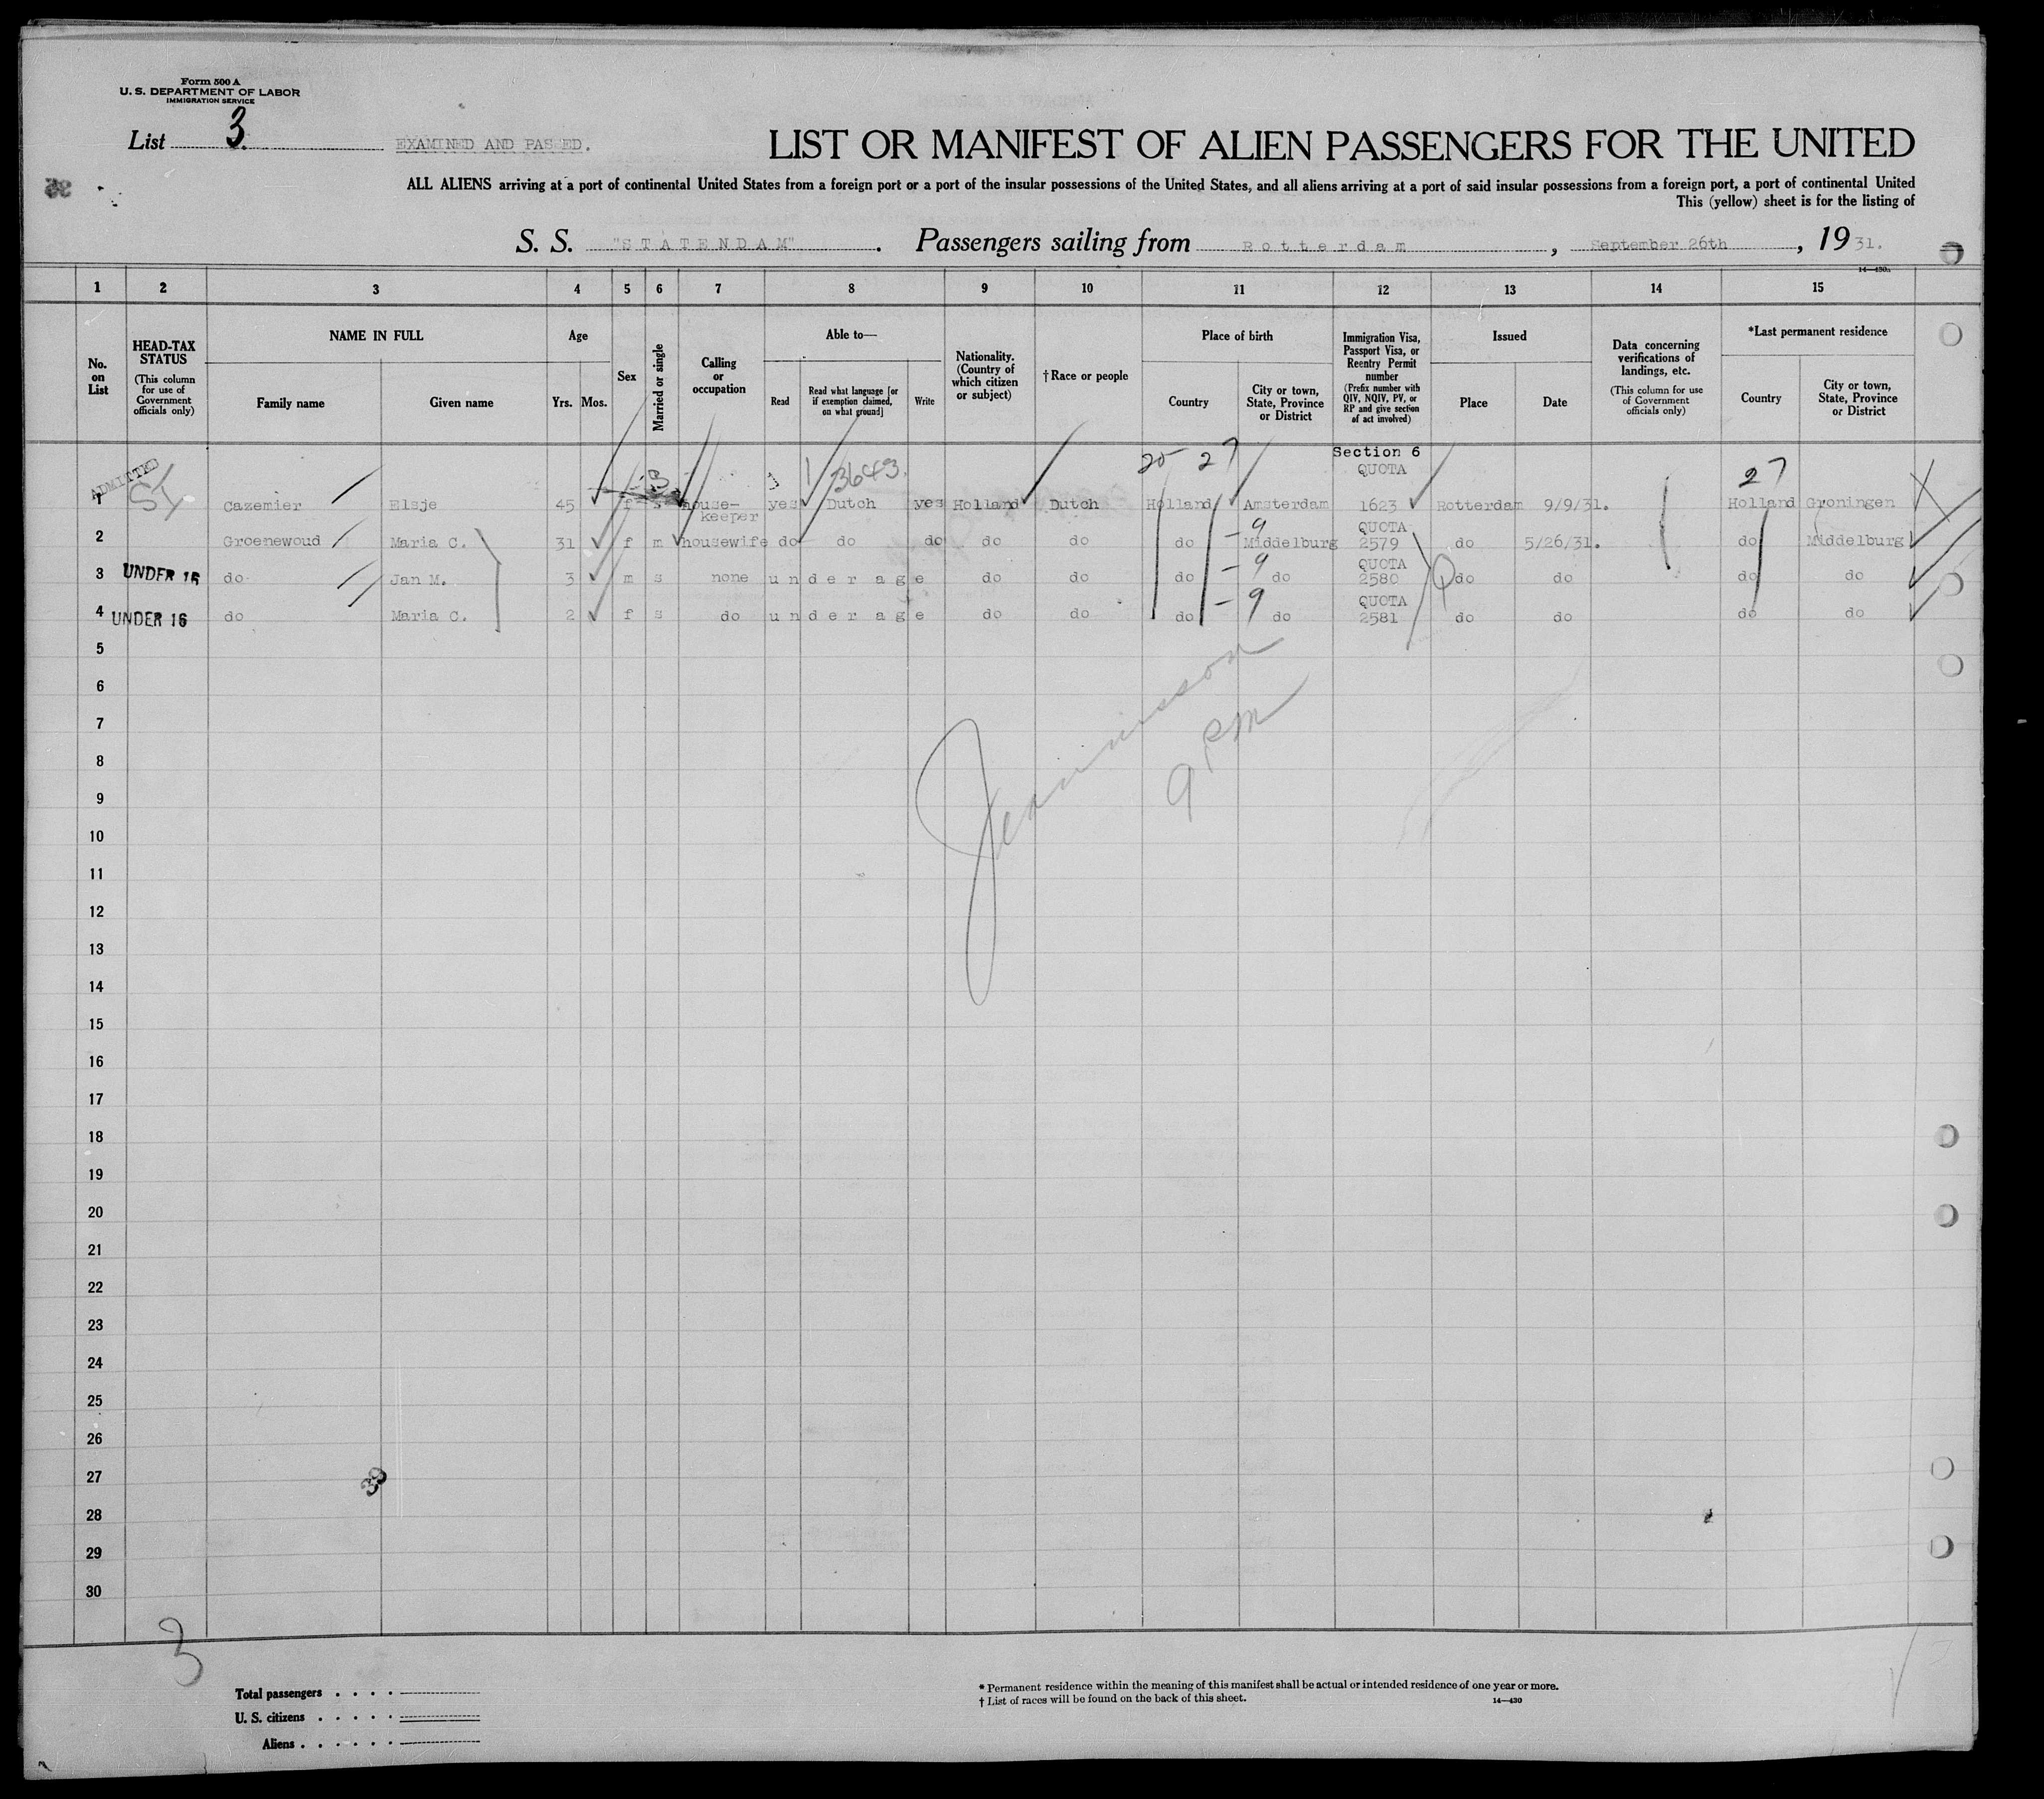 Form 500 A
U. S. DEPARTMENT OF LABOR
IMMIGRATION SERVICE
List 3. EXAMINED AND PASSED.
LIST OR MANIFEST OF ALIEN PASSENGERS FOR THE UNITED
ALL ALIENS arriving at a port of continental United States from a foreign port or a port of the insular possessions of the United States, and all aliens arriving at a port of said insular possessions from a foreign port, a port of continental United
This (yellow) sheet is for the listing of
S. S. "STATENDAM". Passengers sailing from Rotterdam, September 26th, 1931.
14—430a
1 2 3 4 5 6 7 8 9 10 11 12 13 14 15
No. on List
HEAD-TAX STATUS (This column for use of Government officials only)
NAME IN FULL
Family name Given name
Age
Yrs. Mos.
Sex
Married or single
Calling or occupation
Able to—
Read
Read what language [or if exemption claimed, on what ground]
Write
Nationality. (Country of which citizen or subject)
†Race or people
Place of birth
Country
City or town, State, Province or District
Immigration Visa, Passport Visa, or Reentry Permit number (Prefix number with QIV, NQIV, PV, or RP and give section of act involved)
Issued
Place Date
Data concerning verifications of landings, etc. (This column for use of Government officials only)
*Last permanent residence
Country
City or town, State, Province or District
Section 6
ADMITTED 3643. 20 27 QUOTA 27
1 SI Cazemier Elsje 45 f s house-keeper yes Dutch yes Holland Dutch Holland Amsterdam 1623 Rotterdam 9/9/31. Holland Groningen
2 Groenewoud Maria C. 31 f m housewife do do do do do do - 9 Middelburg QUOTA 2579 do 5/26/31. do Middelburg
3 UNDER 16 do Jan M. 3 m s none under age do do do - 9 do QUOTA 2580 do do do do
4 UNDER 16 do Maria C. 2 f s do under age do do do - 9 do QUOTA 2581 do do do do
5
6
7
8
9
10
11
12
13
14
15
16
17
18
19
20
21
22
23
24
25
26
27
28
29
30
9 PM
38
3
Total passengers
U. S. citizens
Aliens
* Permanent residence within the meaning of this manifest shall be actual or intended residence of one year or more.
† List of races will be found on the back of this sheet.
14—430